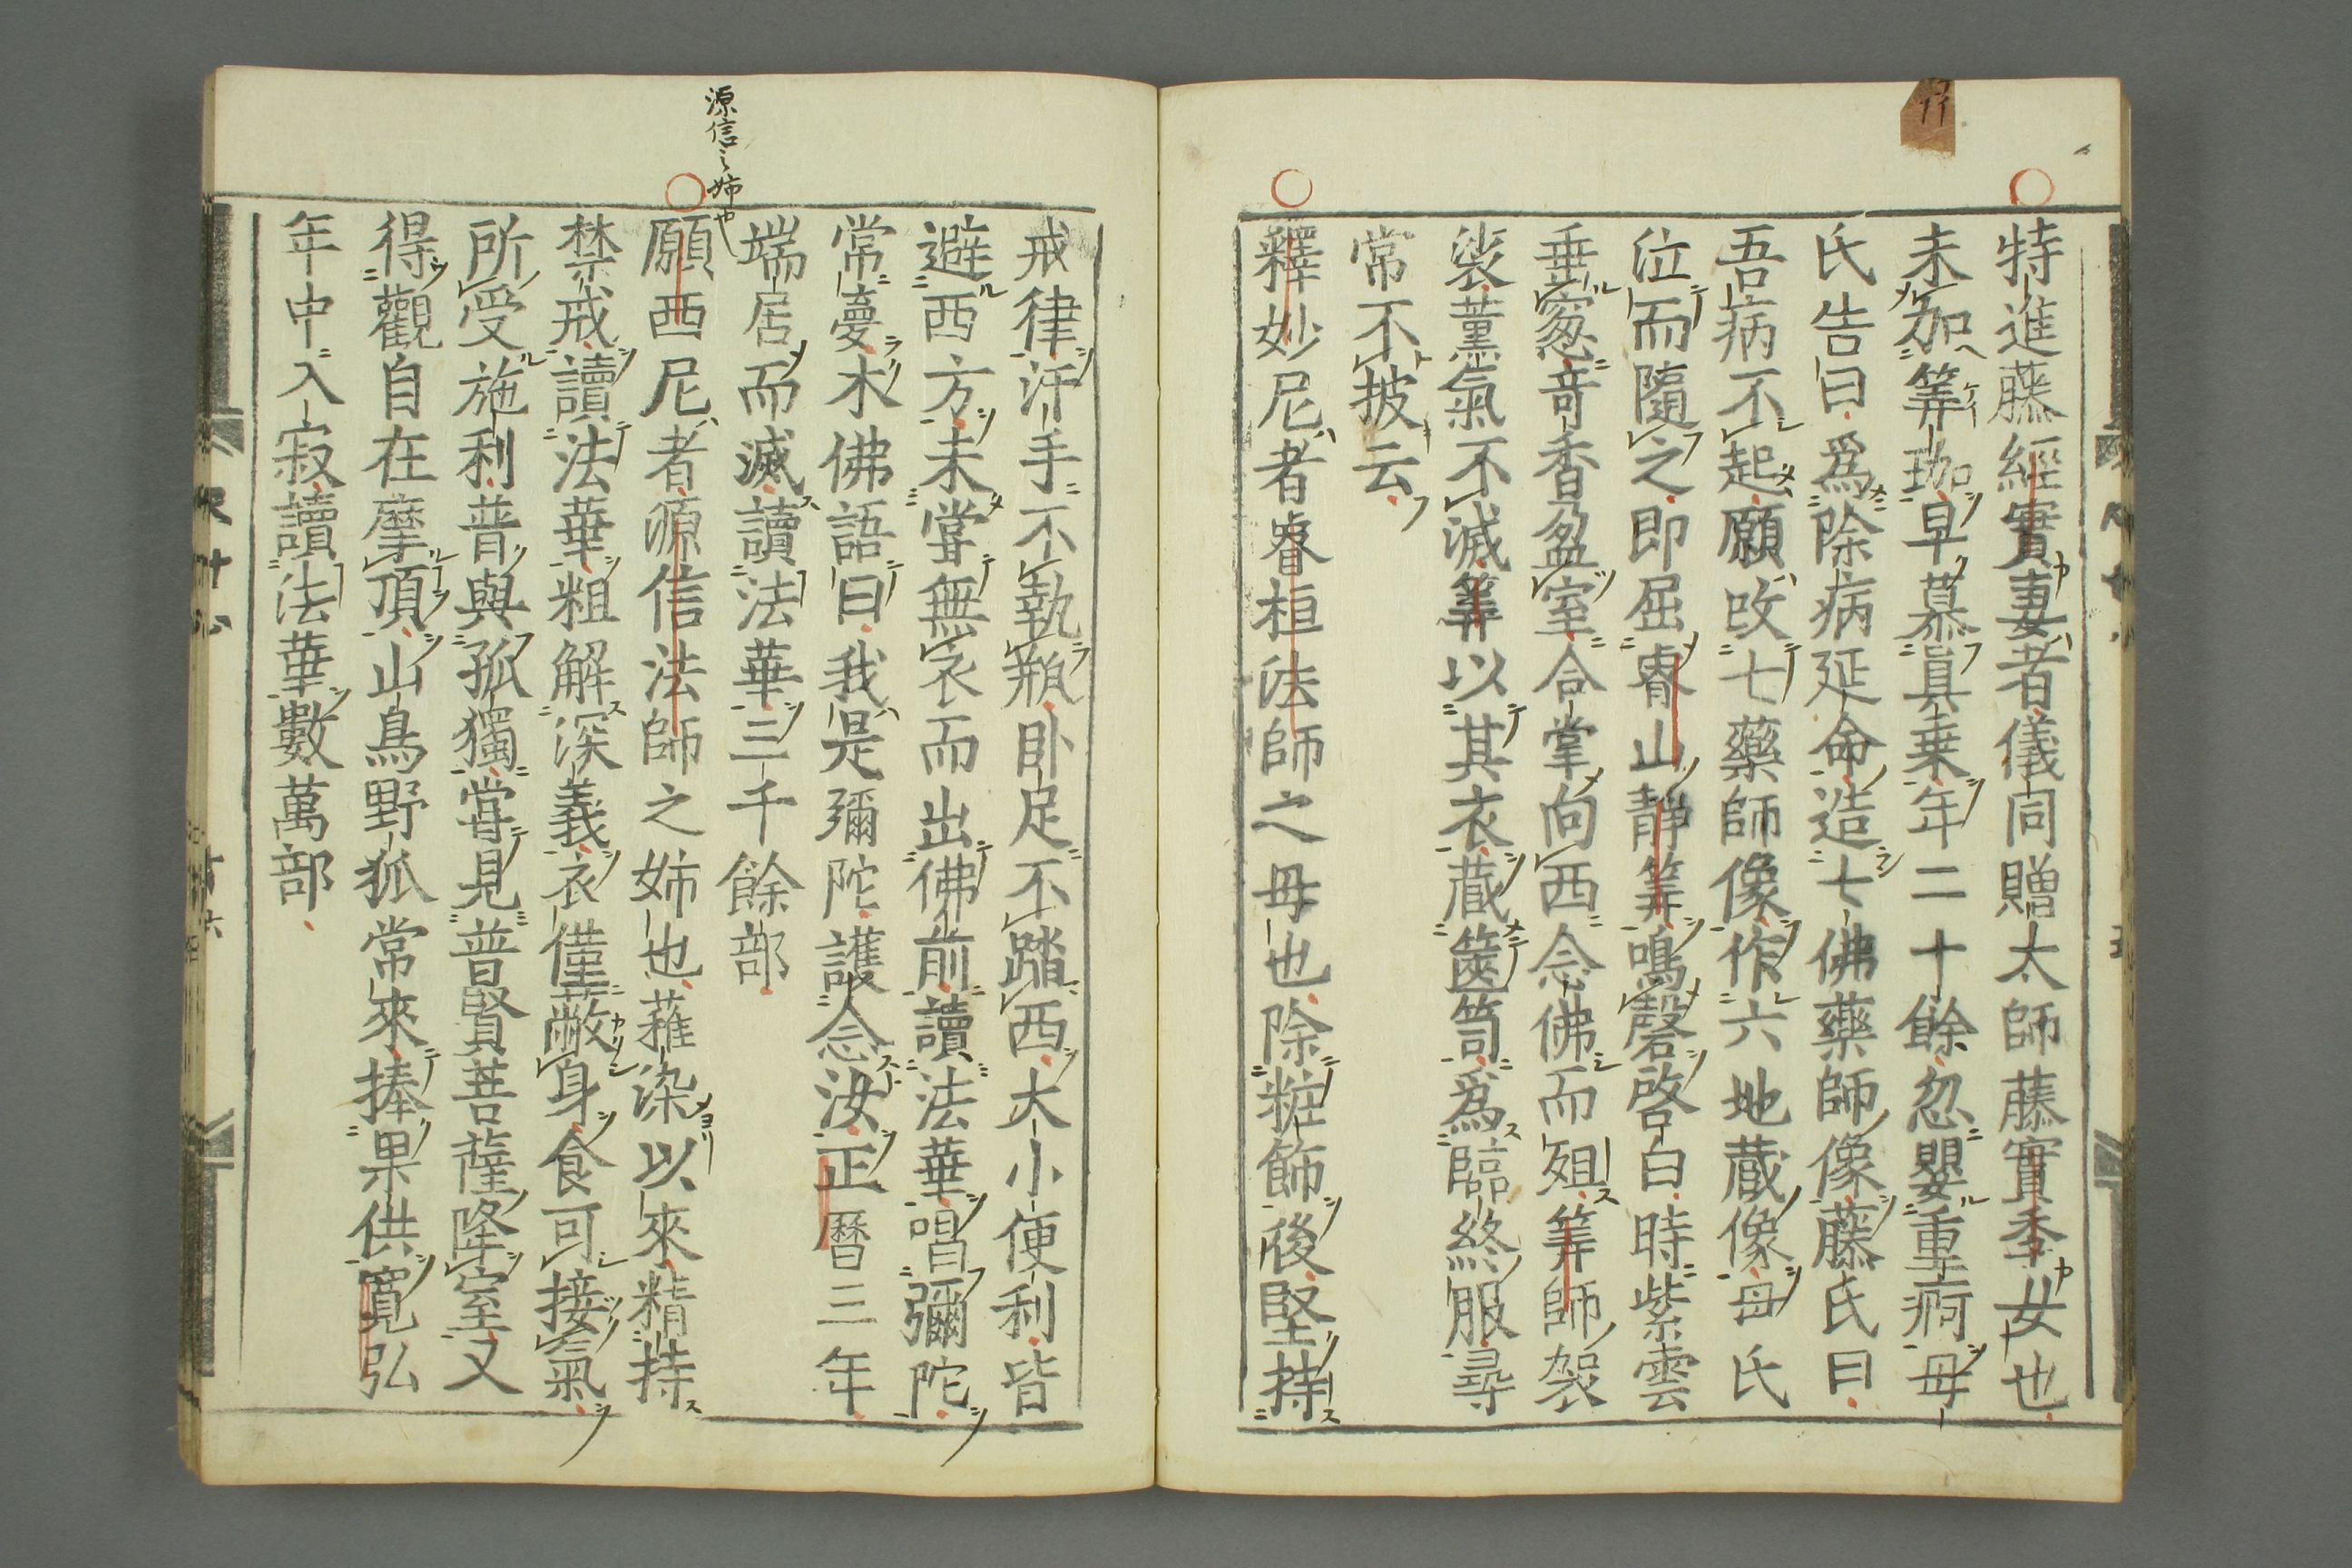 特進藤經實妻者儀同贈太師藤實季女也
未加笄珈早慕眞乗年二十餘忽嬰重痾母
氏告曰爲除病延命造七佛藥師像藤氏曰
吾病不起願改七藥師像作六地蔵像母氏
泣而隨之即屈睿山靜筭鳴磬啓白時紫雲
垂窓竒香盈室合掌向西念佛而殂筭師袈
裟薫氣不滅筭以其衣蔵篋笥爲臨終服尋
常不披云
釋妙尼者睿桓法師之母也除粧飾後堅持
源信之姉也
戒律汙手不執瓶卧足不踏西大小便利皆
避西方未甞無衣而出佛前讀法華唱彌陀
常夢木佛語曰我是彌陀護念汝正曆三年
端居而滅讀法華三千餘部
願西尼者源信法師之姉也薙染以來精持
禁戒讀法華粗解深義衣僅蔽身食可接氣
所受施利普與孤獨甞見普賢菩薩降室又
得觀自在摩頂山鳥野狐常來捧果供寛弘
年中入寂讀法華數萬部